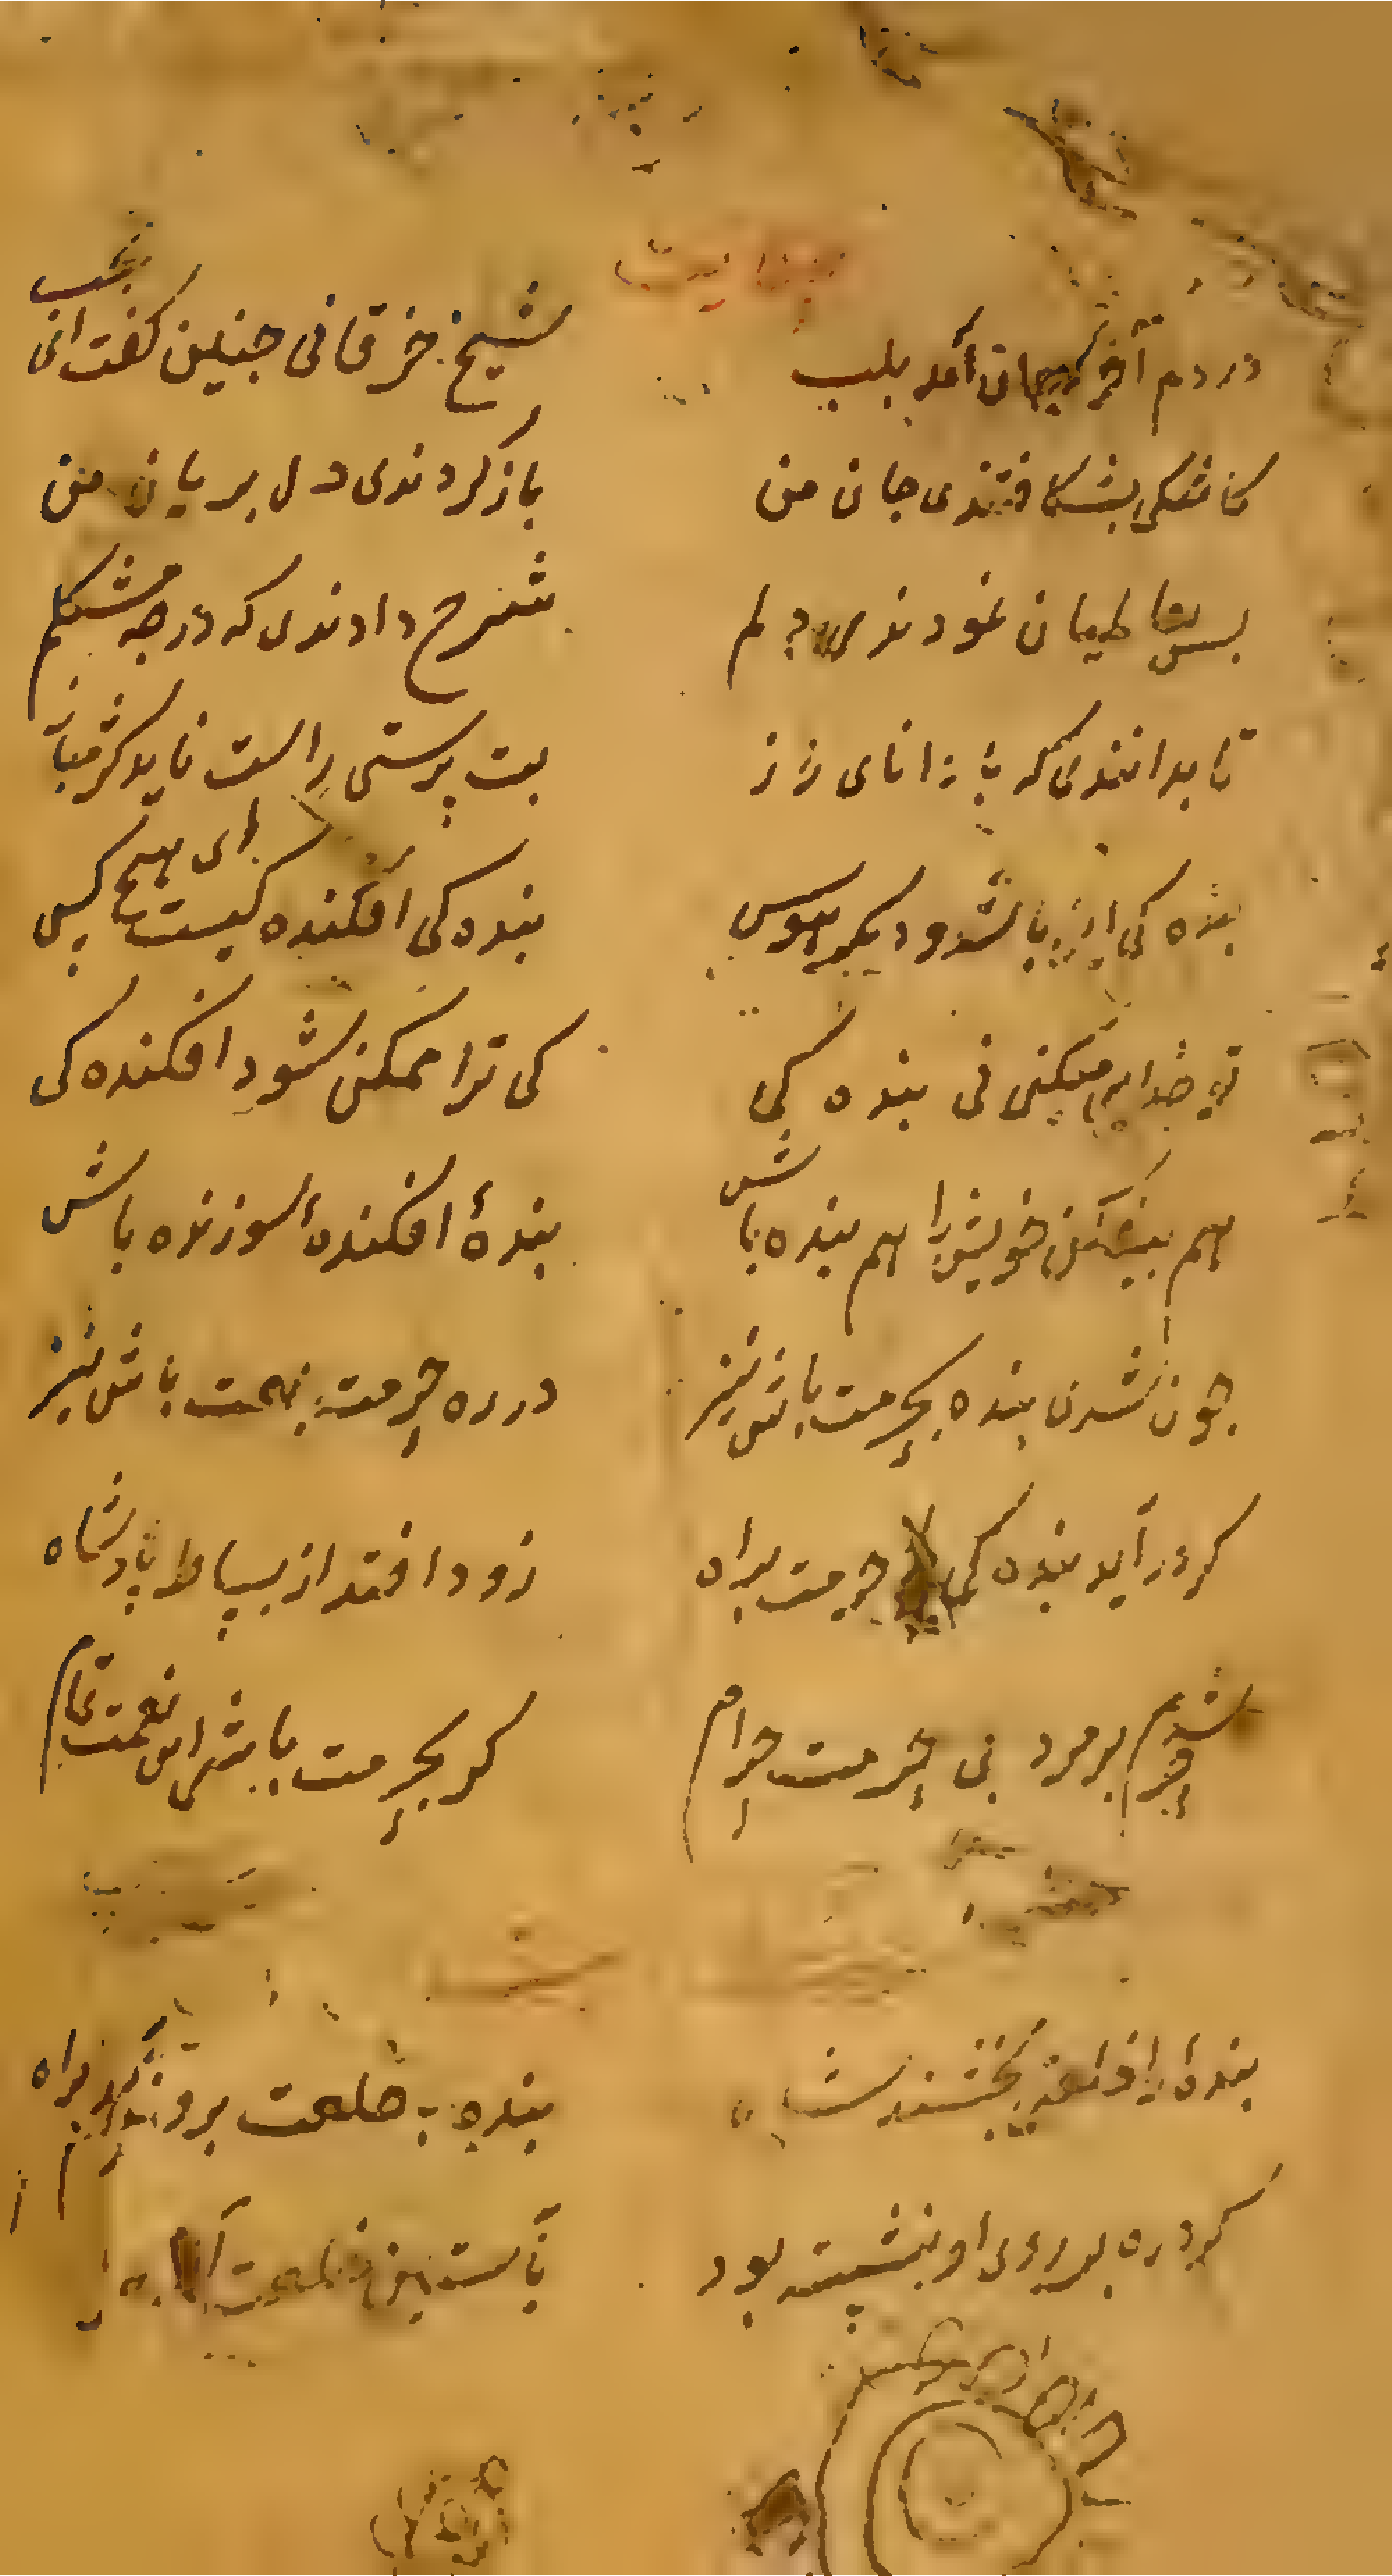 حکایت
در دم آخر که جان آمد بلب شیخ خرقانی جنین کفت ای عجب
کاشکی بشکافتندی جان من باز کردندی دل بریان من
بس بعالمیان نمودندی دلم شرح دادندی که در جه مشکلم
تا بدانندی که با دانای راز بت پرستی راست ناید کژ مباز
بنده کی این باشد و دیکر هوس بنده کی افکنده کیست ای هیج کس
تو خدایی میکنی نی بنده کی کی ترا ممکن شود افکنده کی
هم بیفکن خویش را هم بنده باش بندهٔ افکندهٔ سوزنده باش
جون شدی بنده بحرمت باش نیز در ره حرمت بهمت باش نیز
کر در آید بنده کی بی حرمت براه زود افتد از بساط پادشاه
شد حرم بر مرد بی حرمت حرام کر بحرمت باشی این نعمت تمام
بنده را خلعت بخشید شاه بنده با خلعت برون آمد براه
کرد ره بر روی او بنشسته بود بآستین خلعت آن